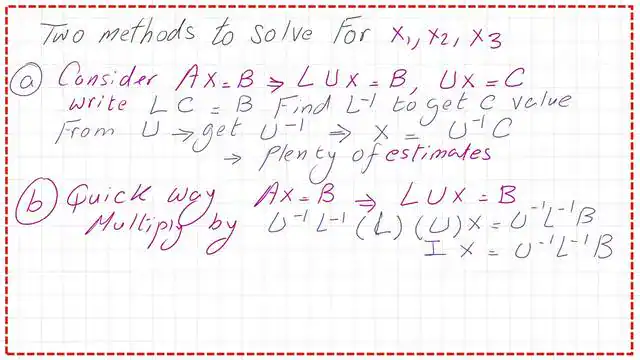 Two methods to solve For x₁, x₂, x₃
(a) Consider AX=B ⇒ LUX=B, UX=C
write LC=B Find L⁻¹ to get C value
From U → get U⁻¹ ⇒ X = U⁻¹C
→ Plenty of estimates
(b) Quick way AX=B ⇒ LUX=B
Multiply by U⁻¹L⁻¹(L)(U)X=U⁻¹L⁻¹B
I X = U⁻¹L⁻¹B